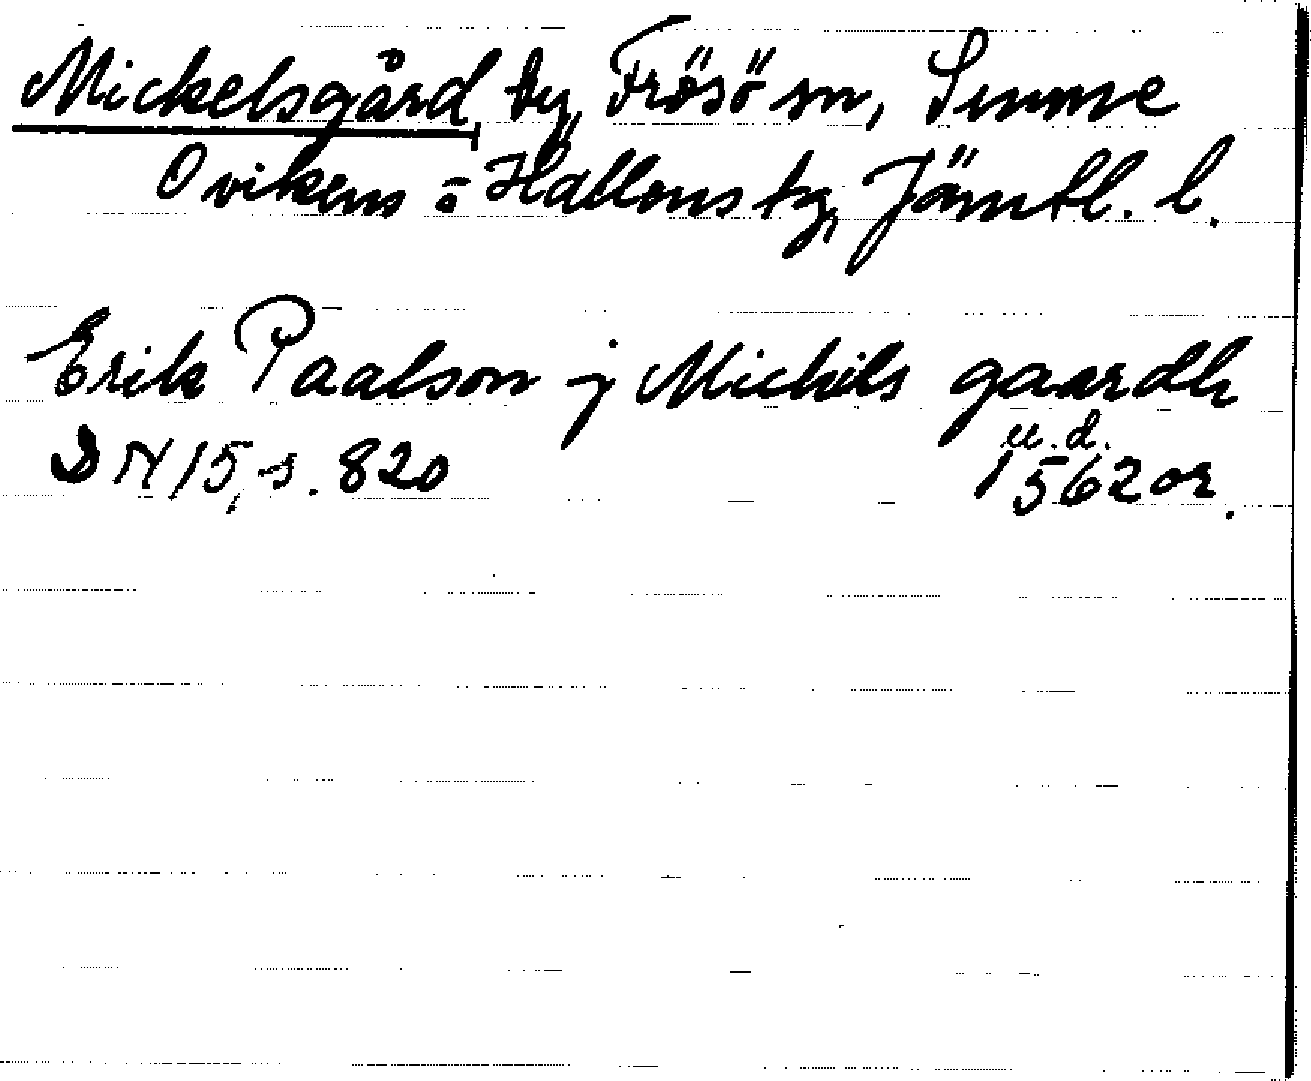 Mickelsgård, by, Frösö sn, Sunne
Ovikens o Hallens tg, Jämtl. l.
Erik Paalson j Michils gaardh
u. d.
DN 15, s. 820 1562 or.